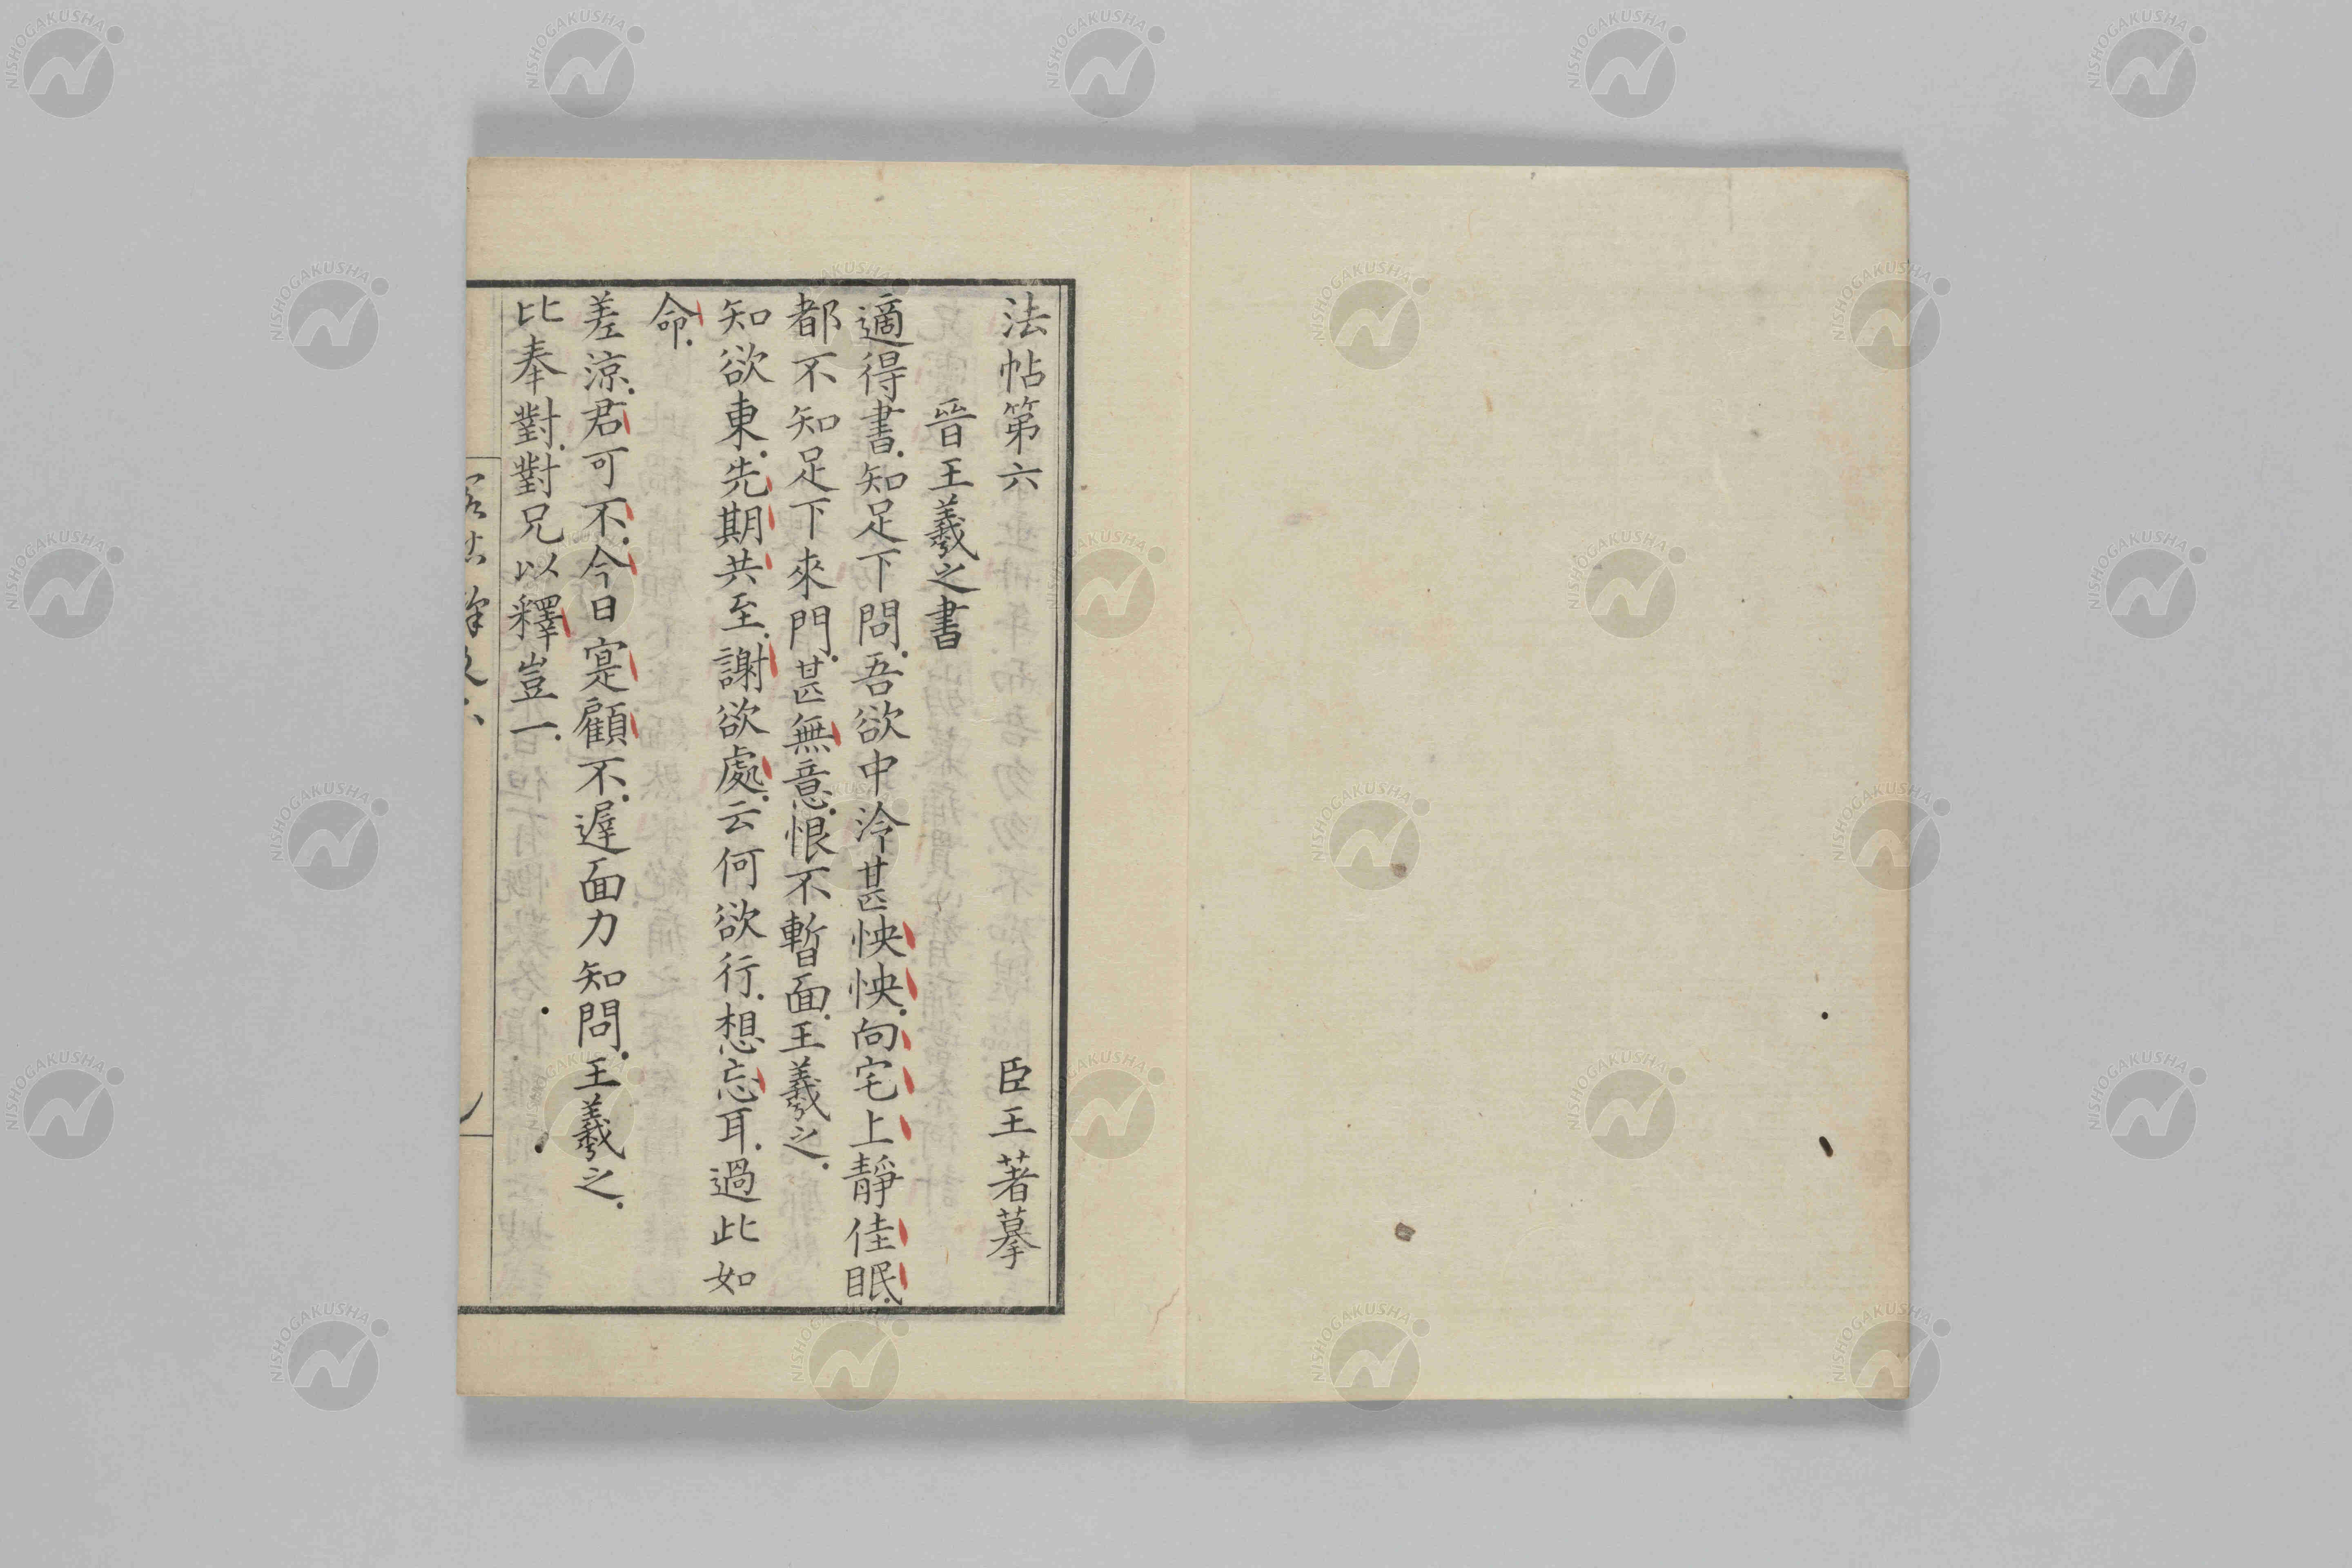 法帖第六 臣王著摹
晉王羲之書
適得書.知足下問.吾欲中泠甚怏怏.向宅上靜佳眠.
都不知足下來門.甚無意.恨不暫面.王羲之.
知欲東.先期共至.謝欲處.云何欲行.想忘耳.過此如
命.
差涼.君可不.今日寔顧不.遟面力知問.王羲之.
比奉對.對兄以釋豈一.
NISHOGAKUSHA